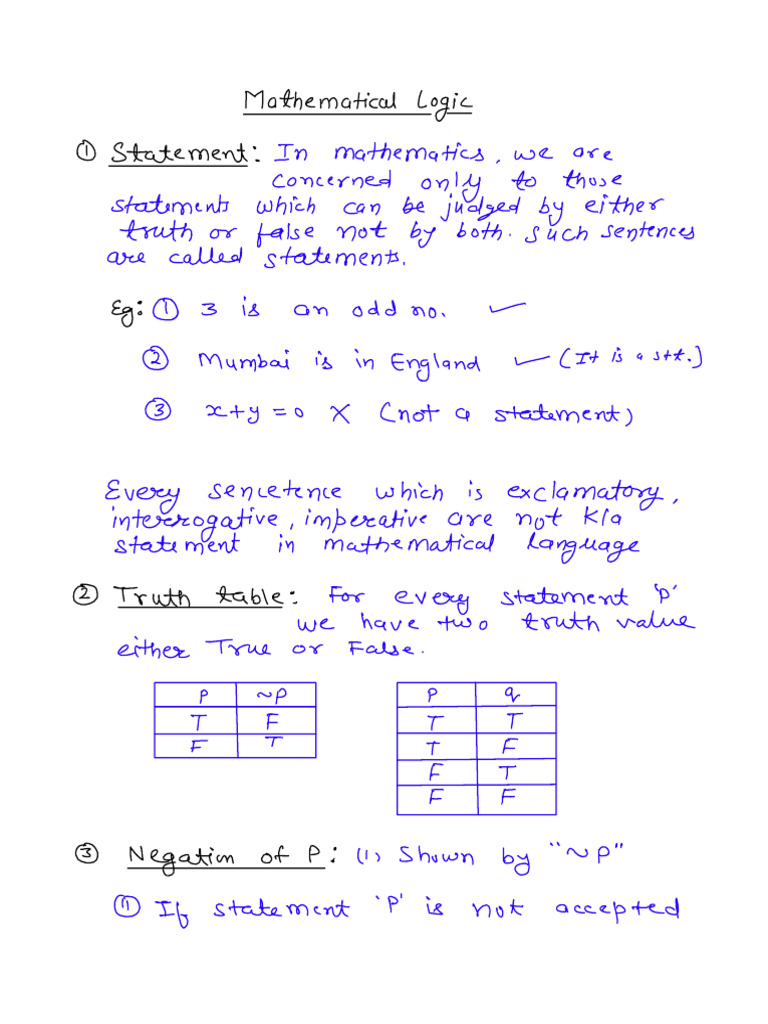 Mathematical Logic
① Statement: In mathematics, we are
concerned only to those
statements which can be judged by either
truth or false not by both. Such sentences
are called statements.
Eg: ① 3 is an odd no. ✓
② Mumbai is in England ✓ (It is a stt.]
③ x+y=0 X (not a statement)
Every sencetence which is exclamatory,
interrogative, imperative are not K/a
statement in mathematical language
② Truth table: For every statement 'p'
we have two truth value
either True or False.
P ~P
T F
F T
P q
T T
T F
F T
F F
③ Negation of P: (1) Shown by "~P"
⑪ If statement 'P' is not accepted